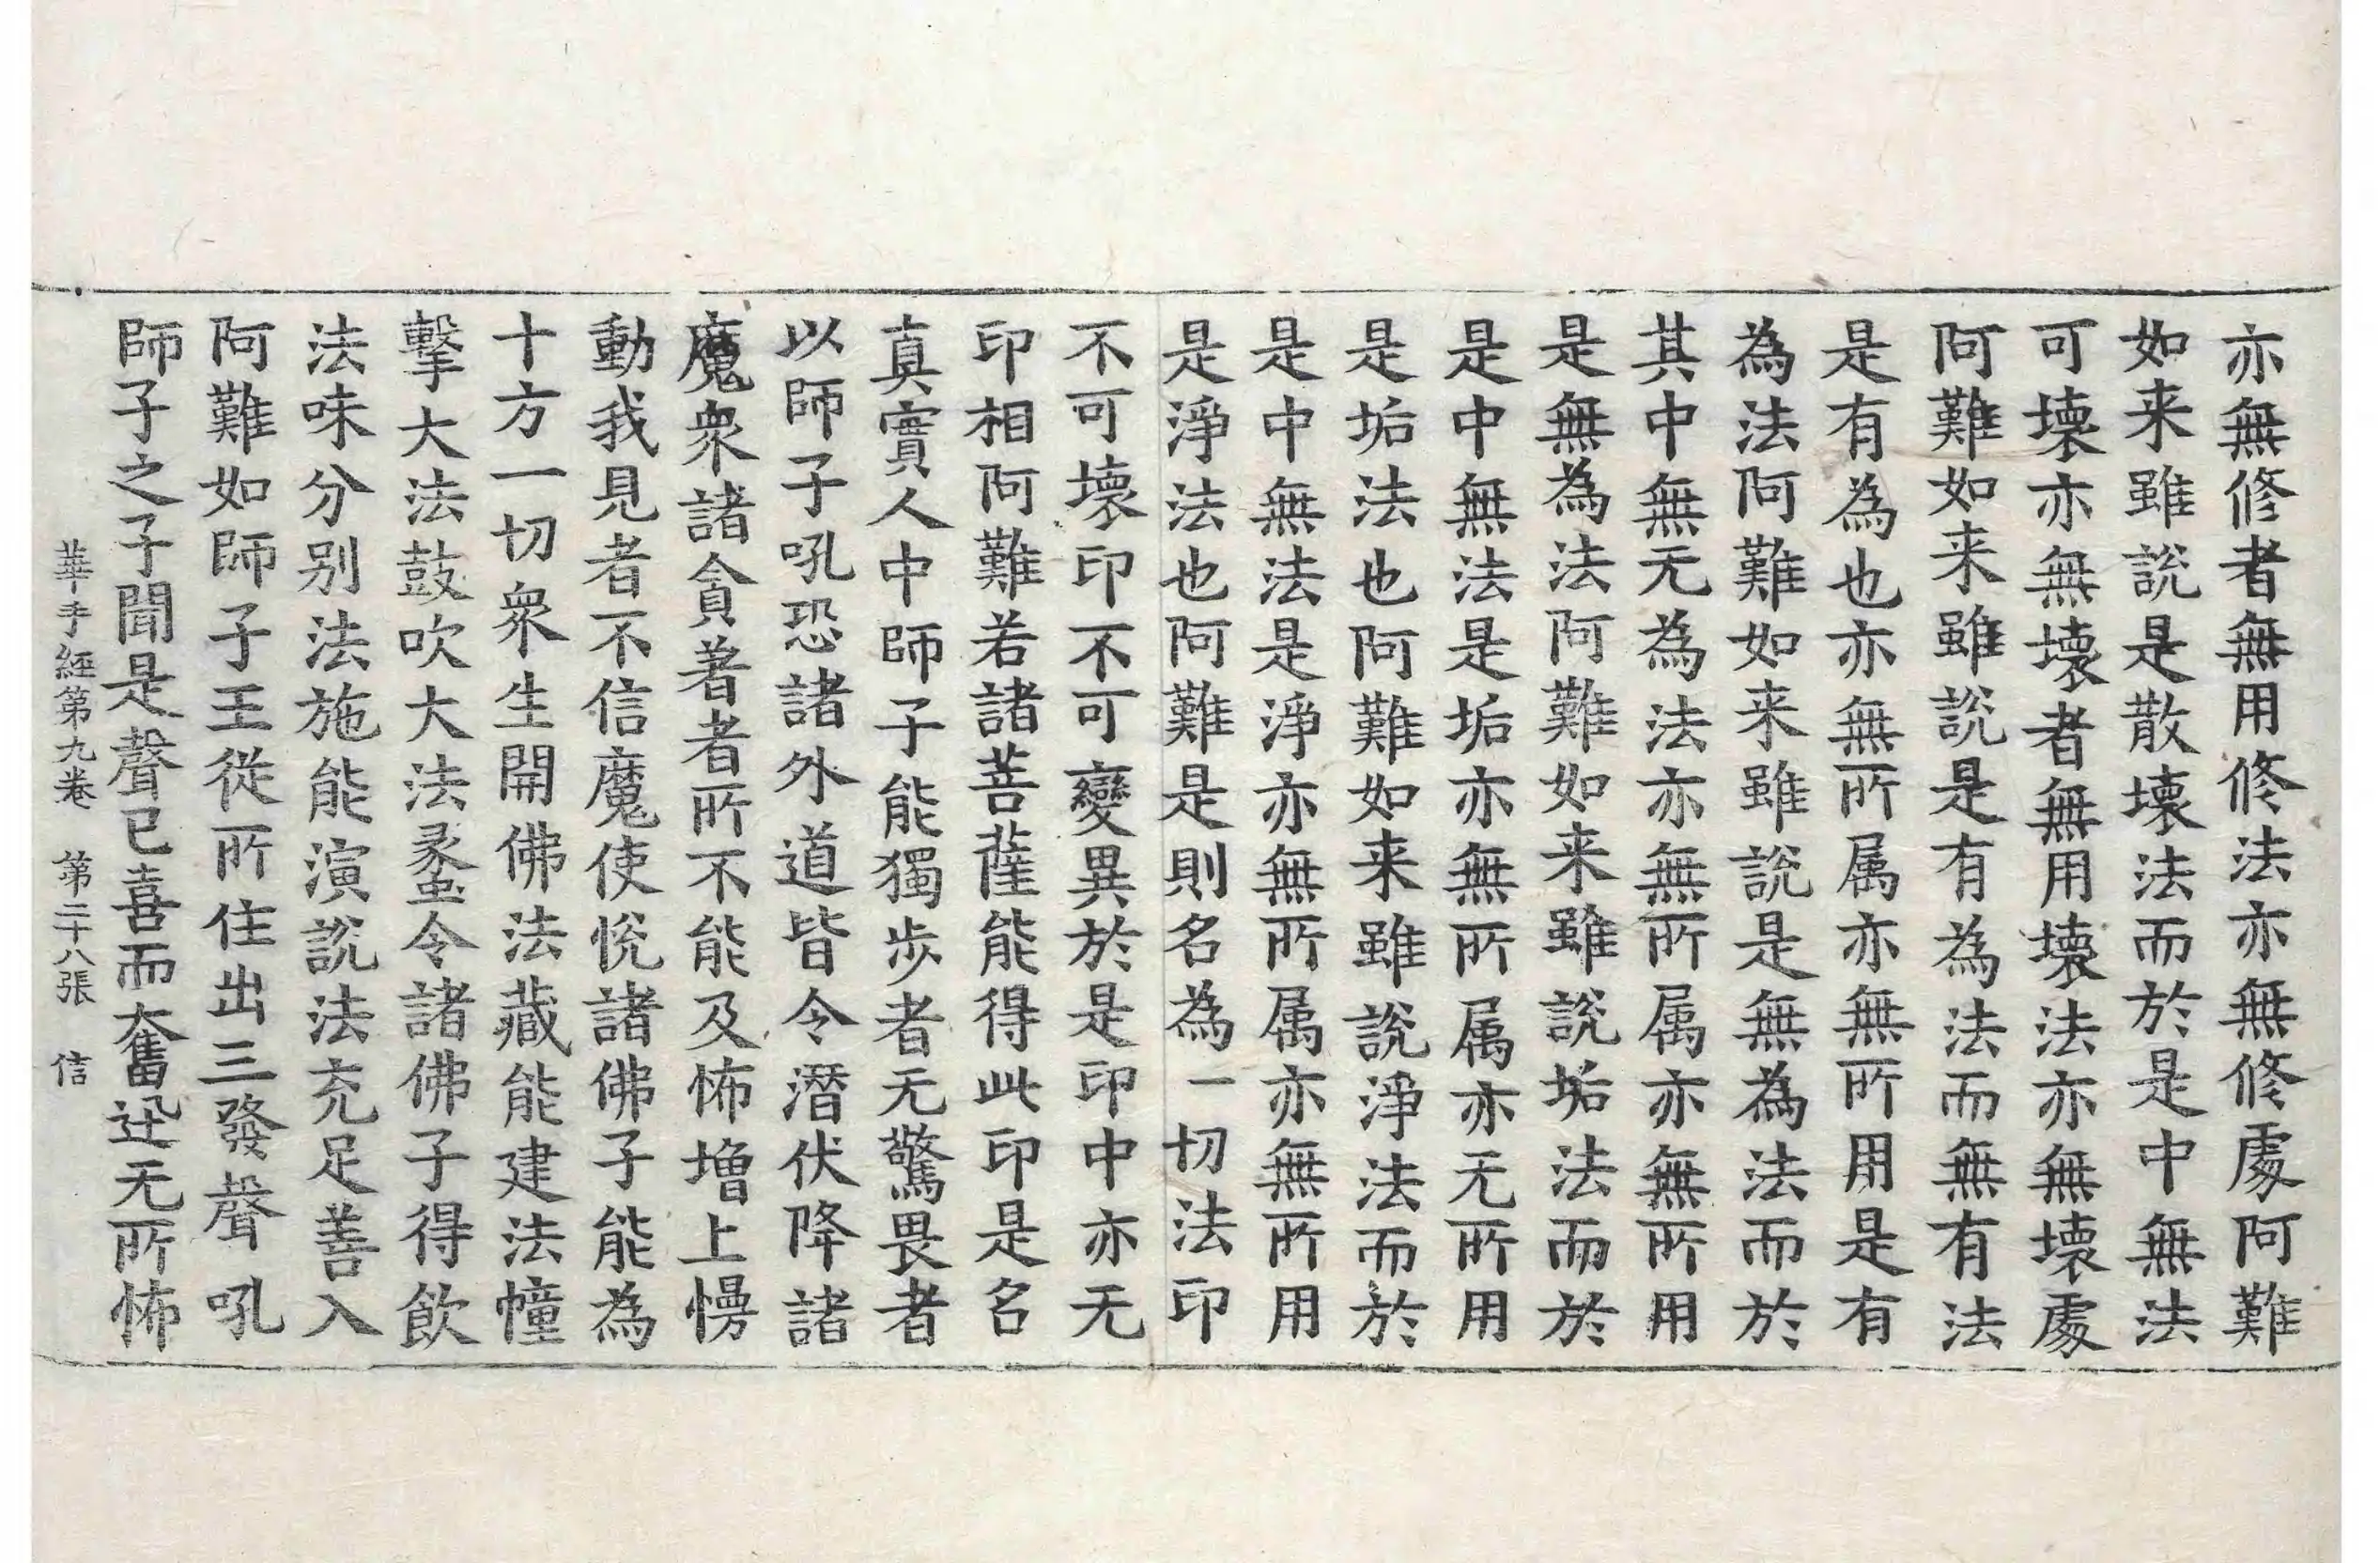 亦無修者無用修法亦無修處阿難
如来雖說是散壞法而於是中無法
可壞亦無壞者無用壞法亦無壞處
阿難如来雖說是有為法而無有法
是有為也亦無所属亦無所用是有
為法阿難如来雖說是無為法而於
其中無无為法亦無所属亦無所用
是無為法阿難如来雖說垢法而於
是中無法是垢亦無所属亦无所用
是垢法也阿難如来雖說淨法而於
是中無法是淨亦無所属亦無所用
是淨法也阿難是則名為一切法印
不可壞印不可變異於是印中亦无
印相阿難若諸菩薩能得此印是名
真實人中師子能獨步者无驚畏者
以師子吼恐諸外道皆令潛伏降諸
魔衆諸貪著者所不能及怖增上慢
動我見者不信魔使悅諸佛子能為
十方一切衆生開佛法藏能建法幢
擊大法鼓吹大法䗍令諸佛子得飲
法味分别法施能演說法充足善入
阿難如師子王從所住出三發聲吼
師子之子聞是聲已喜而奮迅无所怖
華手經第九卷 第二十八張 信